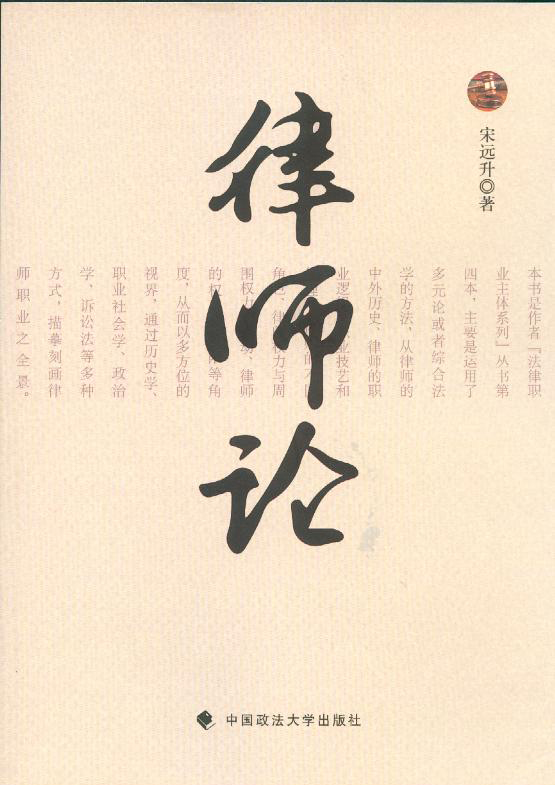 宋远升◎著
律师论
本书是作者『法律职
业主体系列』丛书第
四本，主要是运用了
多元论或者综合法
学的方法，从律师的
中外历史、律师的职
业技艺和
权力与周
围权力 、律师
的权 等角
度，从而以多方位的
视界，通过历史学、
职业社会学、政治
学、诉讼法等多种
方式，描摹刻画律
师职业之全景。
中国政法大学出版社